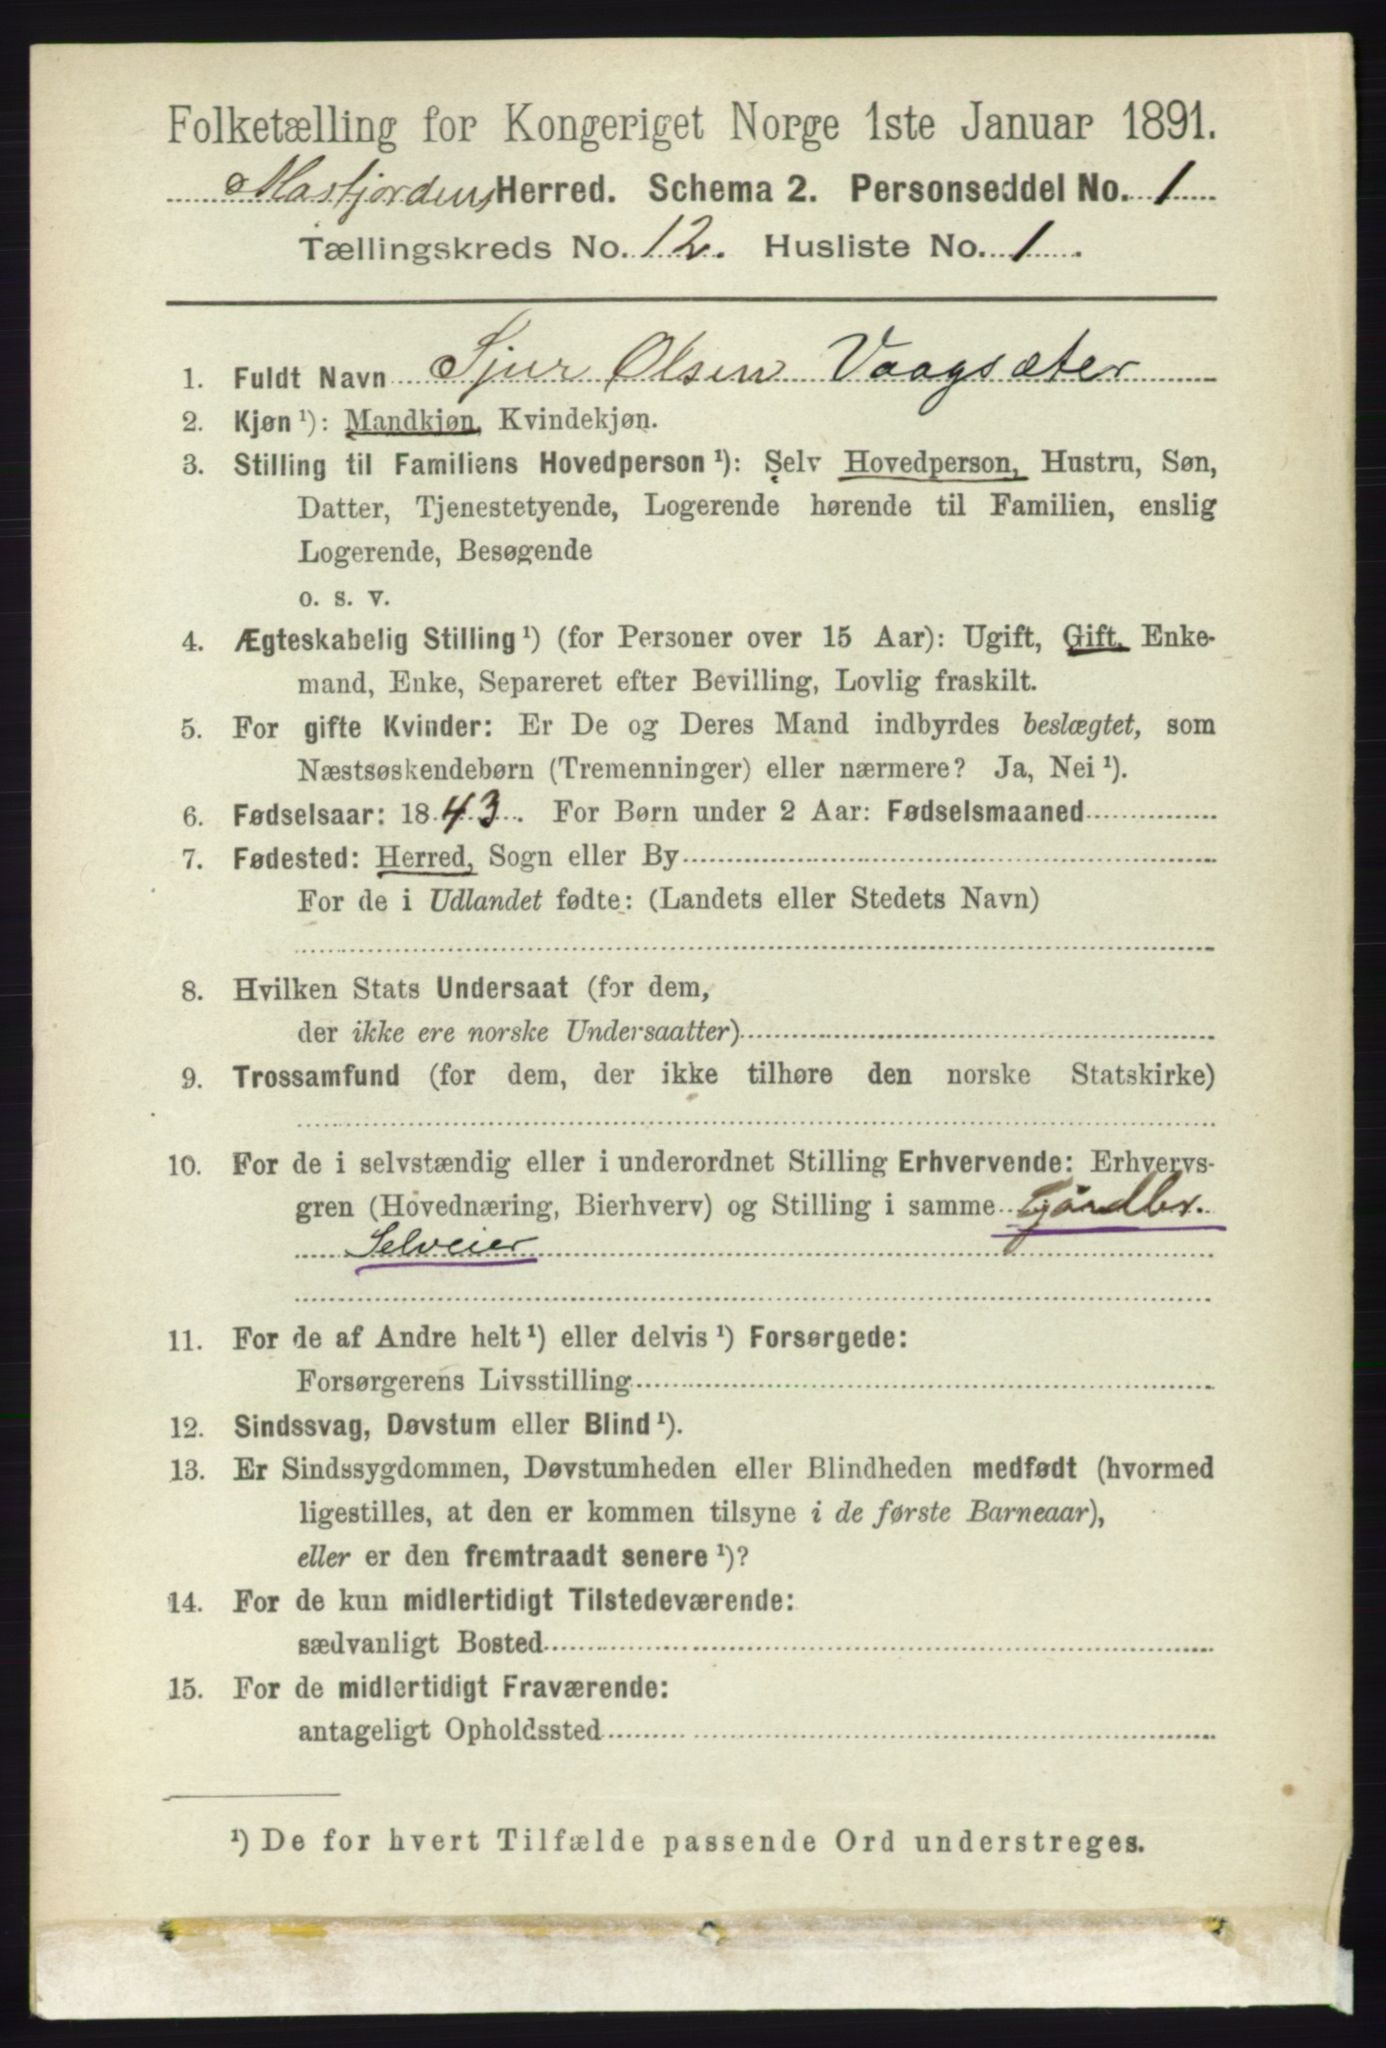 Folketælling for Kongeriget Norge 1ste Januar 1891.
Masfjordens Herred. Schema 2. Personseddel No. 1
Tællingskreds No. 12. Husliste No. 1.
1. Fuldt Navn Sjur Olsen Vaagsæter
2. Kjøn ¹): Mandkjøn, Kvindekjøn.
3. Stilling til Familiens Hovedperson ¹): Selv Hovedperson, Hustru, Søn,
Datter, Tjenestetyende, Logerende hørende til Familien, enslig
Logerende, Besøgende
o. s. v.
4. Ægteskabelig Stilling ¹) (for Personer over 15 Aar): Ugift, Gift, Enke-
mand, Enke, Separeret efter Bevilling, Lovlig fraskilt.
5. For gifte Kvinder: Er De og Deres Mand indbyrdes beslægtet, som
Næstsøskendebørn (Tremenninger) eller nærmere? Ja, Nei ¹).
6. Fødselsaar: 1843. For Børn under 2 Aar: Fødselsmaaned
7. Fødested: Herred, Sogn eller By
For de i Udlandet fødte: (Landets eller Stedets Navn)
8. Hvilken Stats Undersaat (for dem,
der ikke ere norske Undersaatter)
9. Trossamfund (for dem, der ikke tilhøre den norske Statskirke)
10. For de i selvstændig eller i underordnet Stilling Erhvervende: Erhvervs-
gren (Hovednæring, Bierhverv) og Stilling i samme Gårdbr.
Selveier
11. For de af Andre helt ¹) eller delvis ¹) Forsørgede:
Forsørgerens Livsstilling
12. Sindssvag, Døvstum eller Blind ¹).
13. Er Sindssygdommen, Døvstumheden eller Blindheden medfødt (hvormed
ligestilles, at den er kommen tilsyne i de første Barneaar),
eller er den fremtraadt senere ¹)?
14. For de kun midlertidigt Tilstedeværende:
sædvanligt Bosted
15. For de midlertidigt Fraværende:
antageligt Opholdssted
¹) De for hvert Tilfælde passende Ord understreges.